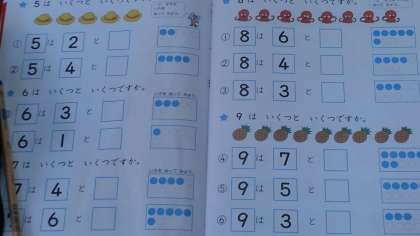 ★ 5は いくつと いくつですか。
① 5 は 2 と
② 5 は 4 と
★ 6は いくつと いくつですか。
6 は 3 と
6 は 1 と
7は いくつと いくつですか。
7 は 4 と
は 6 と
★ 8は いくつと いくつですか。
① 8 は 6 と
② 8 は 4 と
③ 8 は 3 と
★ 9は いくつと いくつですか。
④ 9 は 7 と
⑤ 9 は 5 と
⑥ 9 は 3 と